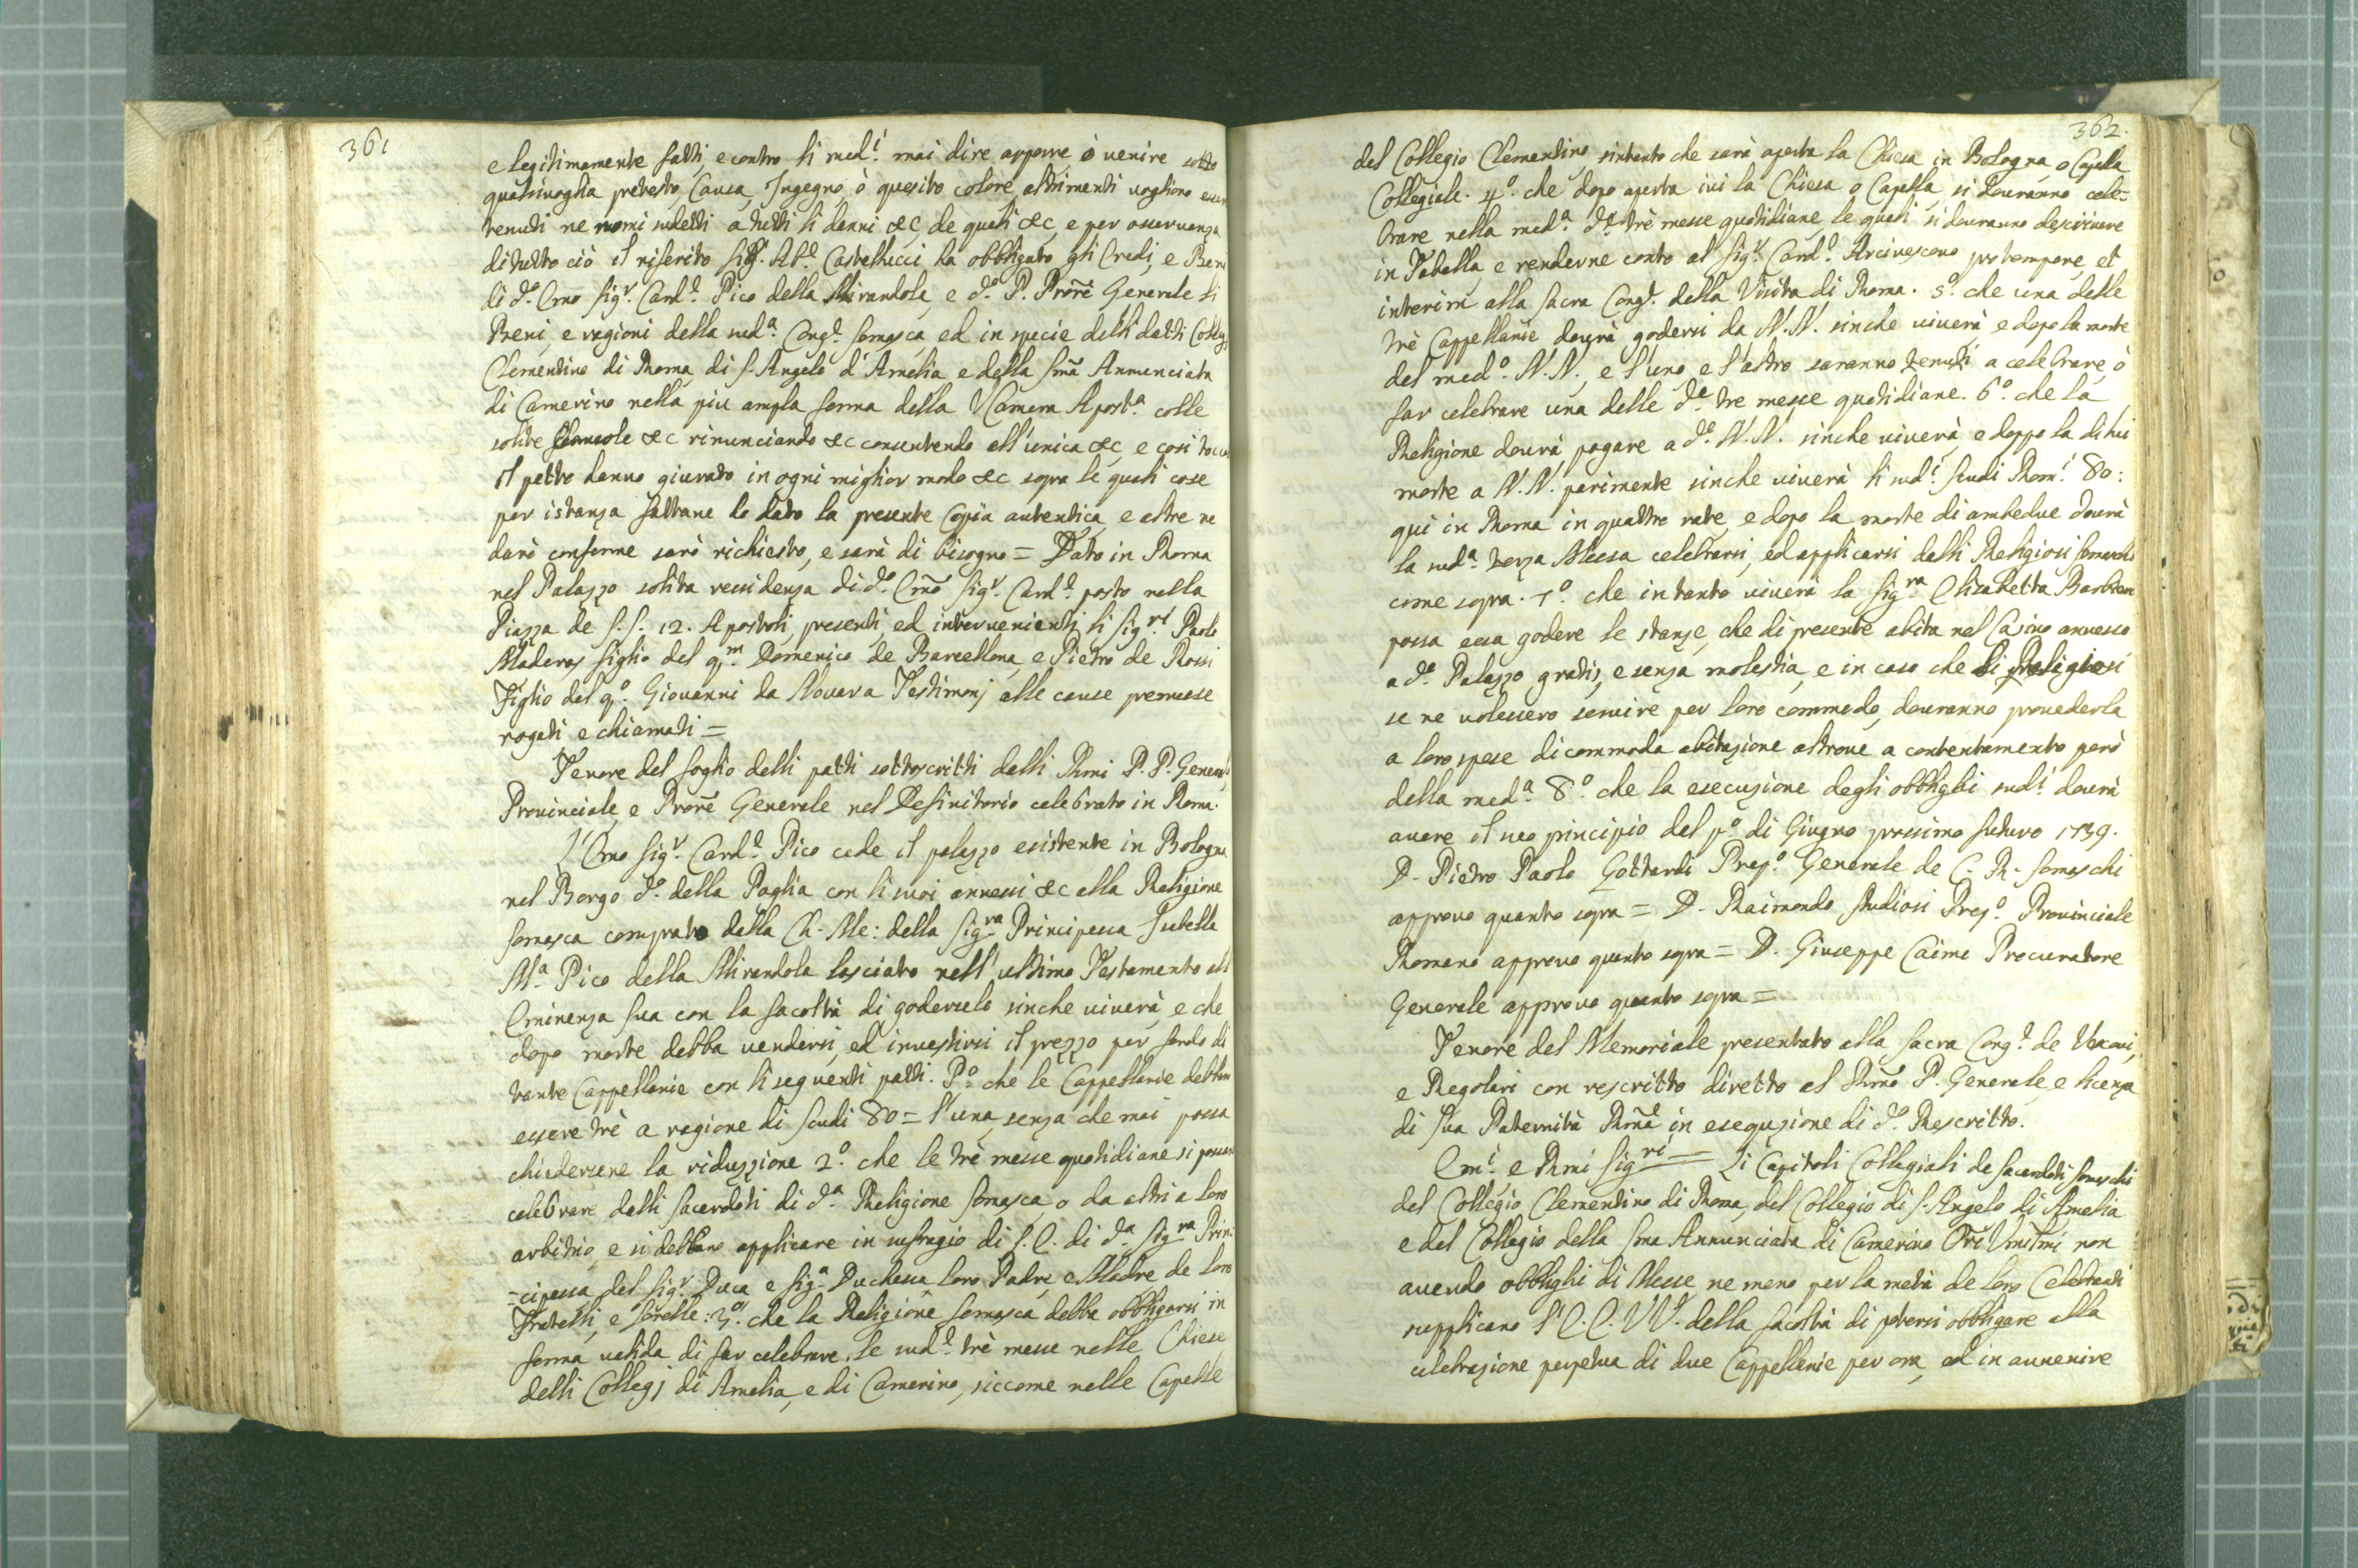 361
e legitimamente fatti, e contro li med.i mai dire apporre ò venire sotto
qualsivoglia pretesto, Causa, Ingegno, ò quesito colore altrimenti vogliono esser
tenuti ne nomi sudetti a tutti li danni &c, de quali &c, e per osservanza
di tutto ciò il riferito Sig.r Ab.e Castellucci ha obbligato gli Eredi, e Beni
di d.o Emo Sig.r Card.e Pico della Mirandola, e d.o P. Prore Generale li
Beni, e ragioni della sud.a Cong.e Somasca, ed in specie delli detti Collegj
Clementino di Roma, di S. Angelo d'Amelia e della Sma Annunciata
di Camerino nella piu ampla forma della R Camera Apost.a colle
solite Clausole &c rinunciando &c consentendo all'unica &c, e così toccatosi
il petto hanno giurato in ogni miglior modo &c sopra le quali cose
per istanza fattane ho dato la presente Copia autentica e altre ne
darò conforme sarò richiesto, e sarà di bisogno = Dato in Roma
nel Palazzo solita residenza di d.o Emo Sig.r Card.e posto nella
Piazza de S.S. 12. Apostoli, presenti, ed intervenienti li Sig.ri Paolo
Maderas figlio del q.m Domenico de Barcellona, e Pietro de Rossi
Figlio del q.o Giovanni da Novara Testimonj alle cause premesse
rogati e chiamati =
Tenore del foglio delli patti sottoscritti dalli Rmi P.P. Generale,
Provinciale, e Prore Generale nel Definitorio celebrato in Roma.
L'Emo Sig.r Card.e Pico cede il palazzo esistente in Bologna
nel Borgo d.o della Paglia con li suoi annessi &c alla Religione
Somasca comprato dalla Ch. Me: della Sig.ra Principessa Fulvia
M.a Pico della Mirandola lasciato nell'ultimo Testamento all
Eminenza Sua con la facoltà di goderselo sinche viverà, e che
dopo morte debba vendersi, ed investirsi il prezzo per fondo di
tante Cappellanie con li seguenti patti. P.o che le Cappellanie debbano
essere trè a ragione di Scudi 80 = l'una, senza che mai possa
chiedersene la riduzzione 2.o che le trè messe quotidiane si possano
celebrare dalli Sacerdoti di d.a Religione Somasca, o da altri a loro
arbitrio, e si debbano applicare in suffragio di S. E. di d.a Sig.ra Prin-
=cipessa del Sig.r Duca e Sig.a Duchessa loro Padre, e Madre de loro
Fratelli, e Sorelle: 3.o che la Religione Somasca debba obbligarsi in
forma valida di far celebrare, le sud.e trè messe nelle Chiese
delli Collegj di Amelia, e di Camerino, siccome nelle Capelle
362.
del Collegio Clementino sintanto che sarà aperta la Chiesa in Bologna, o Capella
Collegiale. 4.o che dopo aperta ivi la Chiesa o Capella, si dovranno cele-
brare nella med.a d.e trè messe quotidiane, le quali si dovranno descrivere
in Tabella, e renderne conto al Sig.r Card.e Arcivescovo protempore, et
interim alla Sacra Cong.e della Visita di Roma. 5.o che una delle
trè Cappellanie dovrà godersi da N.N. sinche viverà e dopo la morte
del med.o N.N., e l'uno, e l'altro saranno tenuti a celebrare, ò
far celebrare una delle d.e tre messe quotidiane. 6.o che la
Religione dovrà pagare a d.o N.N. sinche viverà, e doppo la di lui
morte a N.N. parimente sinche viverà li sud.i Scudi Rom.i 80:
qui in Roma in quattro rate, e dopo la morte di ambedue dovrà
la sud.a terza Messa celebrarsi, ed applicarsi dalli Religiosi Somaschi
come sopra. 7.o che intanto viverà la Sig.ra Elisabetta
possa essa godere le stanze, che di presente abita nel Casino annesso
a d.o Palazzo gratis, e senza molestia, e in caso che li Religiosi
se ne volessero servire per loro commodo, dovranno provederla
a loro spese di commoda abitazione altrove a contentamento però
della med.a 8.o che la esecuzione degli obblighi sud.i dovrà
avere il suo principio del p.o di Giugno prossimo futuro 1739.
D. Pietro Paolo Gottardi Prep.o Generale de C. R. Somaschi
approvo quanto sopra = D. Raimondo Studiosi Prep.o Provinciale
Romano approvo quanto sopra = D. Giuseppe Caimo Procuratore
Generale approvo quanto sopra =
Tenore del Memoriale presentato alla Sacra Cong.e de Vescovi,
e Regolari con rescritto diretto al Rmo P. Generale, e licenza
di Sua Paternità Rma in esequzione di d.o Rescritto.
Em.i e Rmi Sig.ri = Li Capitoli Collegiali de Sacerdoti Somaschi
del Collegio Clementino di Roma, del Collegio di S. Angelo di Amelia
e del Collegio della Sma Annunciata di Camerino Ori Umilmi non
avendo obblighi di Messe ne meno per la metà de loro Celebranti
supplicano l'E.E. VV. della facoltà di potersi obbligare alla
celebrazione perpetua di due Cappellanie per ora, ed in avvenire